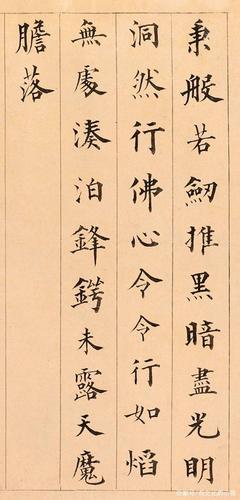 秉般若劔推黑暗盡光明
洞然行佛心令令行如熖
無處湊泊鋒鍔未露天魔
膽落